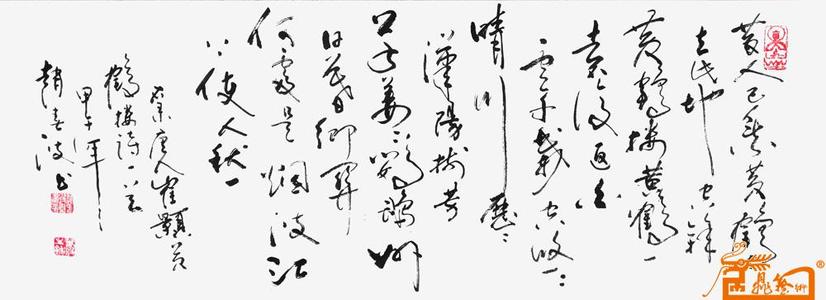 昔人已乘黄鶴
去此地空餘
黄鶴樓黄鶴一
去不復返白
雲千載空悠〻
晴川歷〻
漢陽樹芳
草萋〻鸚鵡洲
日暮鄉關
何處是烟波江
上使人愁
录唐人崔顥黄
鶴樓詩一首
甲午年
趙春波书